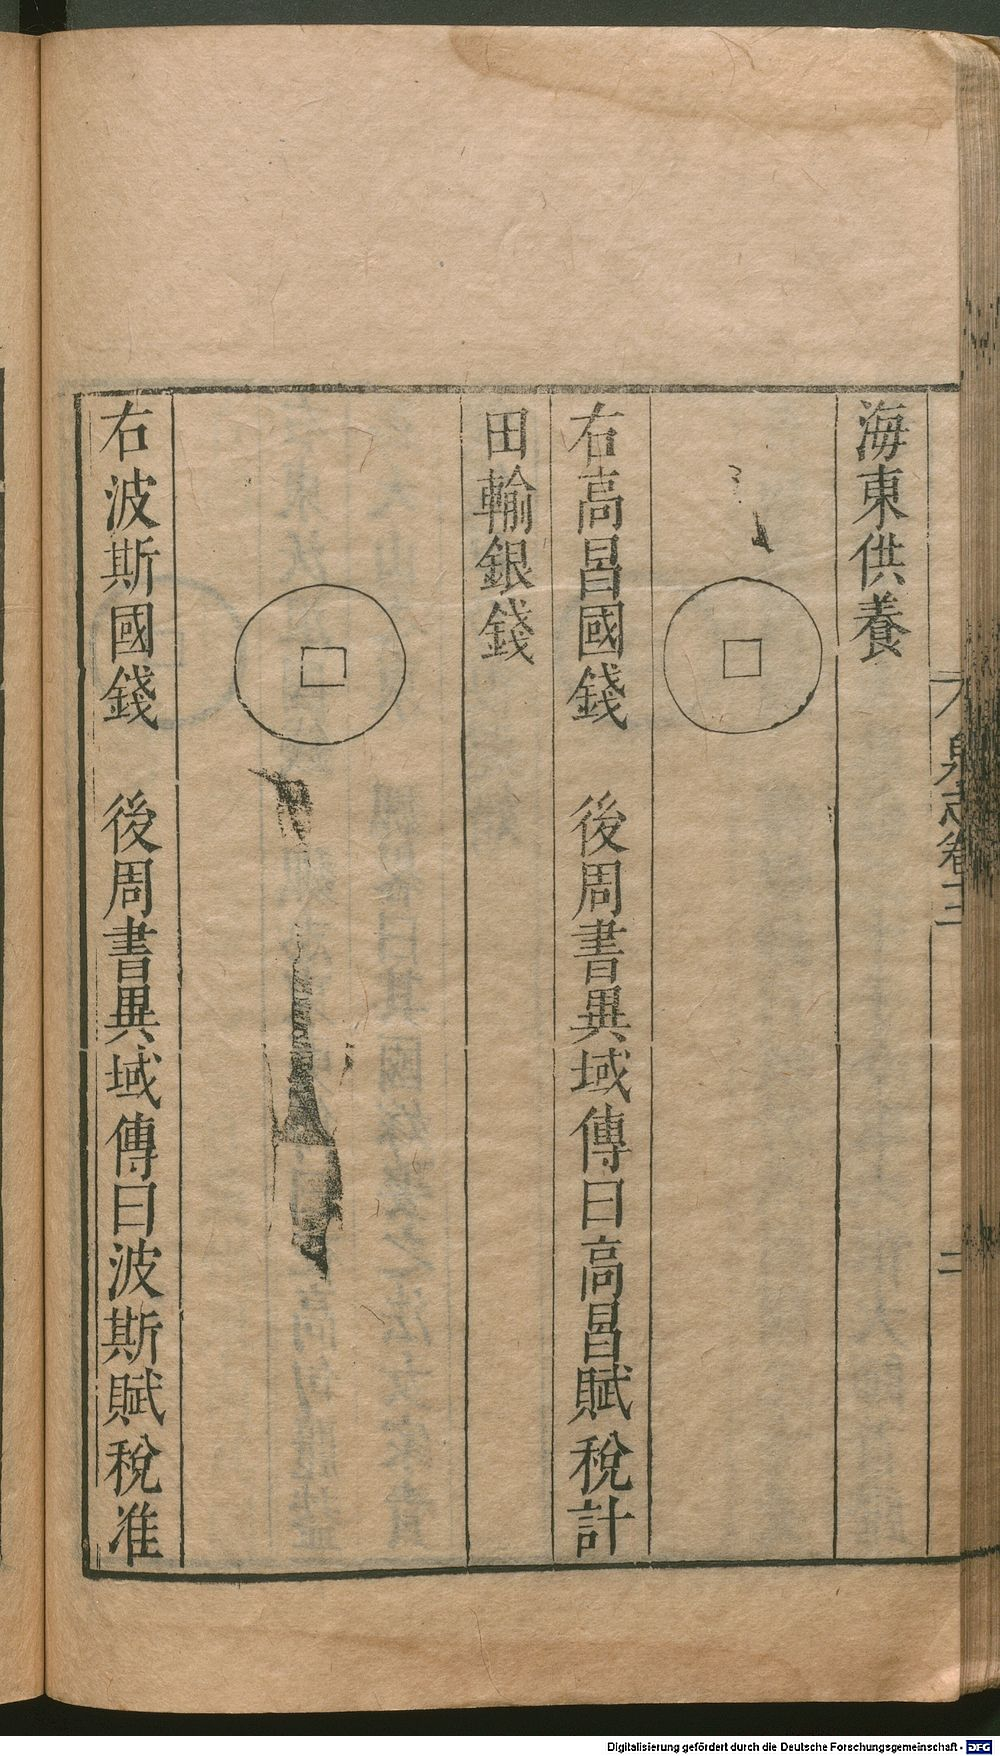 海東供養
右高昌國錢　後周書異域傳曰高昌賦稅計
田輸銀錢
右波斯國錢　後周書異域傳曰波斯賦稅准
二
Digitalisierung gefördert durch die Deutsche Forschungsgemeinschaft - DFG